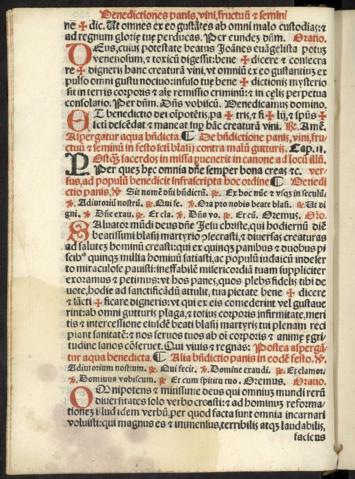 Benedictiones panis, vini, fructuũ & seminũ
ne ✠ dic. Ut omnes ex eo gustãtes ab omni malo custodias: &
ad regnum glorię tuę perducas. Per eundez dñm. Oratio.
DEus, cuius potestate beatus Joãnes euãgelista potuz
venenosum, & toxicũ digessit: bene ✠ dicere & consecra
re ✠ digneris hanc creaturã vini, vt omniũ ex eo gustantiuz ex
pulso omni gustu nociuo: infusio tuę bene ✠ dictionis mysterio
sit in terris corporis & aĩe remissio criminũ: & in celis perpetua
consolatio. Per dñm. Dñs vobiscũ. Benedicamus domino.
ET benedictio dei oĩpotẽtis, pa ✠ tris, & fi ✠ lij, & spũs ✠
scti, descẽdat: & maneat sup hãc creaturã vini. ℟. Amẽ.
Aspergatur aqua bñdicta. ¶ De bñdictione panis, vini, fru-
ctuũ & seminũ in festo scti blasij contra malũ gutturis. Cap. ij.
POstq̃z sacerdos in missa puenerit in canone ad locũ illũ.
Per quez hęc omnia dñe semper bona creas &c. ver-
sus, ad populũ benedicit infrascripta hoc ordine ¶ Benedi
ctio panis. ℣. Sit nomẽ dñi bñdictũ. ℟. Ex hoc nũc & vsq̃z in seculũ.
℣. Adiutoriũ nostrũ. ℟. Qui fe. ℣. Ora pro nobis beate blasi. ℟. Ut di
gni. ℣. Dñe exau. ℟. Et cla. ℣. Dñs vo. ℟. Et cũ. Oremus. Oro.
SAluator mũdi deus dñe Jesu christe, qui hodiernũ diẽ
beatissimi blasij martyrio ↄsecrasti, & diuersas creaturas
ad salutez hominũ creasti: qui ex quinqz panibus & duobus pi
scibꝰ quinqz millia hominũ satiasti, ac populũ iudaicũ indeser
to miraculose pauisti: ineffabilẽ misericordiã tuam suppliciter
exoramus & petimus: vt hos panes, quos plebs fidelis tibi de
uote, hodie ad sanctificãdũ attulit, tua pietate bene ✠ dicere
& sãcti ✠ ficare digneris: vt qui ex eis comederint vel gustaue
rint: ab omni gutturis plaga, & totius corporis infirmitate, meri
tis & intercessione eiusdẽ beati blasij martyris tui plenam reci
piant sanitatẽ: & nos seruos tuos ab oĩ corporis & animę ęgri
tudine sanos cõseruet. Qui viuis & regnas. Postea aspergã-
tur aqua benedicta. ¶ Alia bñdictio panis in eodẽ festo. ℣.
Adiutorium nostrum. ℟. Qui fecit. ℣. Domine exaudi. ℟. Et clamor.
℣. Dominus vobiscum. ℟. Et cum spiritu tuo. Oremus. Oratio.
OMnipotens & mitissime deus qui omniuz mundi rerũ
diuersitates solo verbo creasti: & ad hominuz reforma-
tionez illud idem verbũ, per quod facta sunt omnia incarnari
voluisti: qui magnus es & immensus, terribilis atqz laudabilis,
facieus